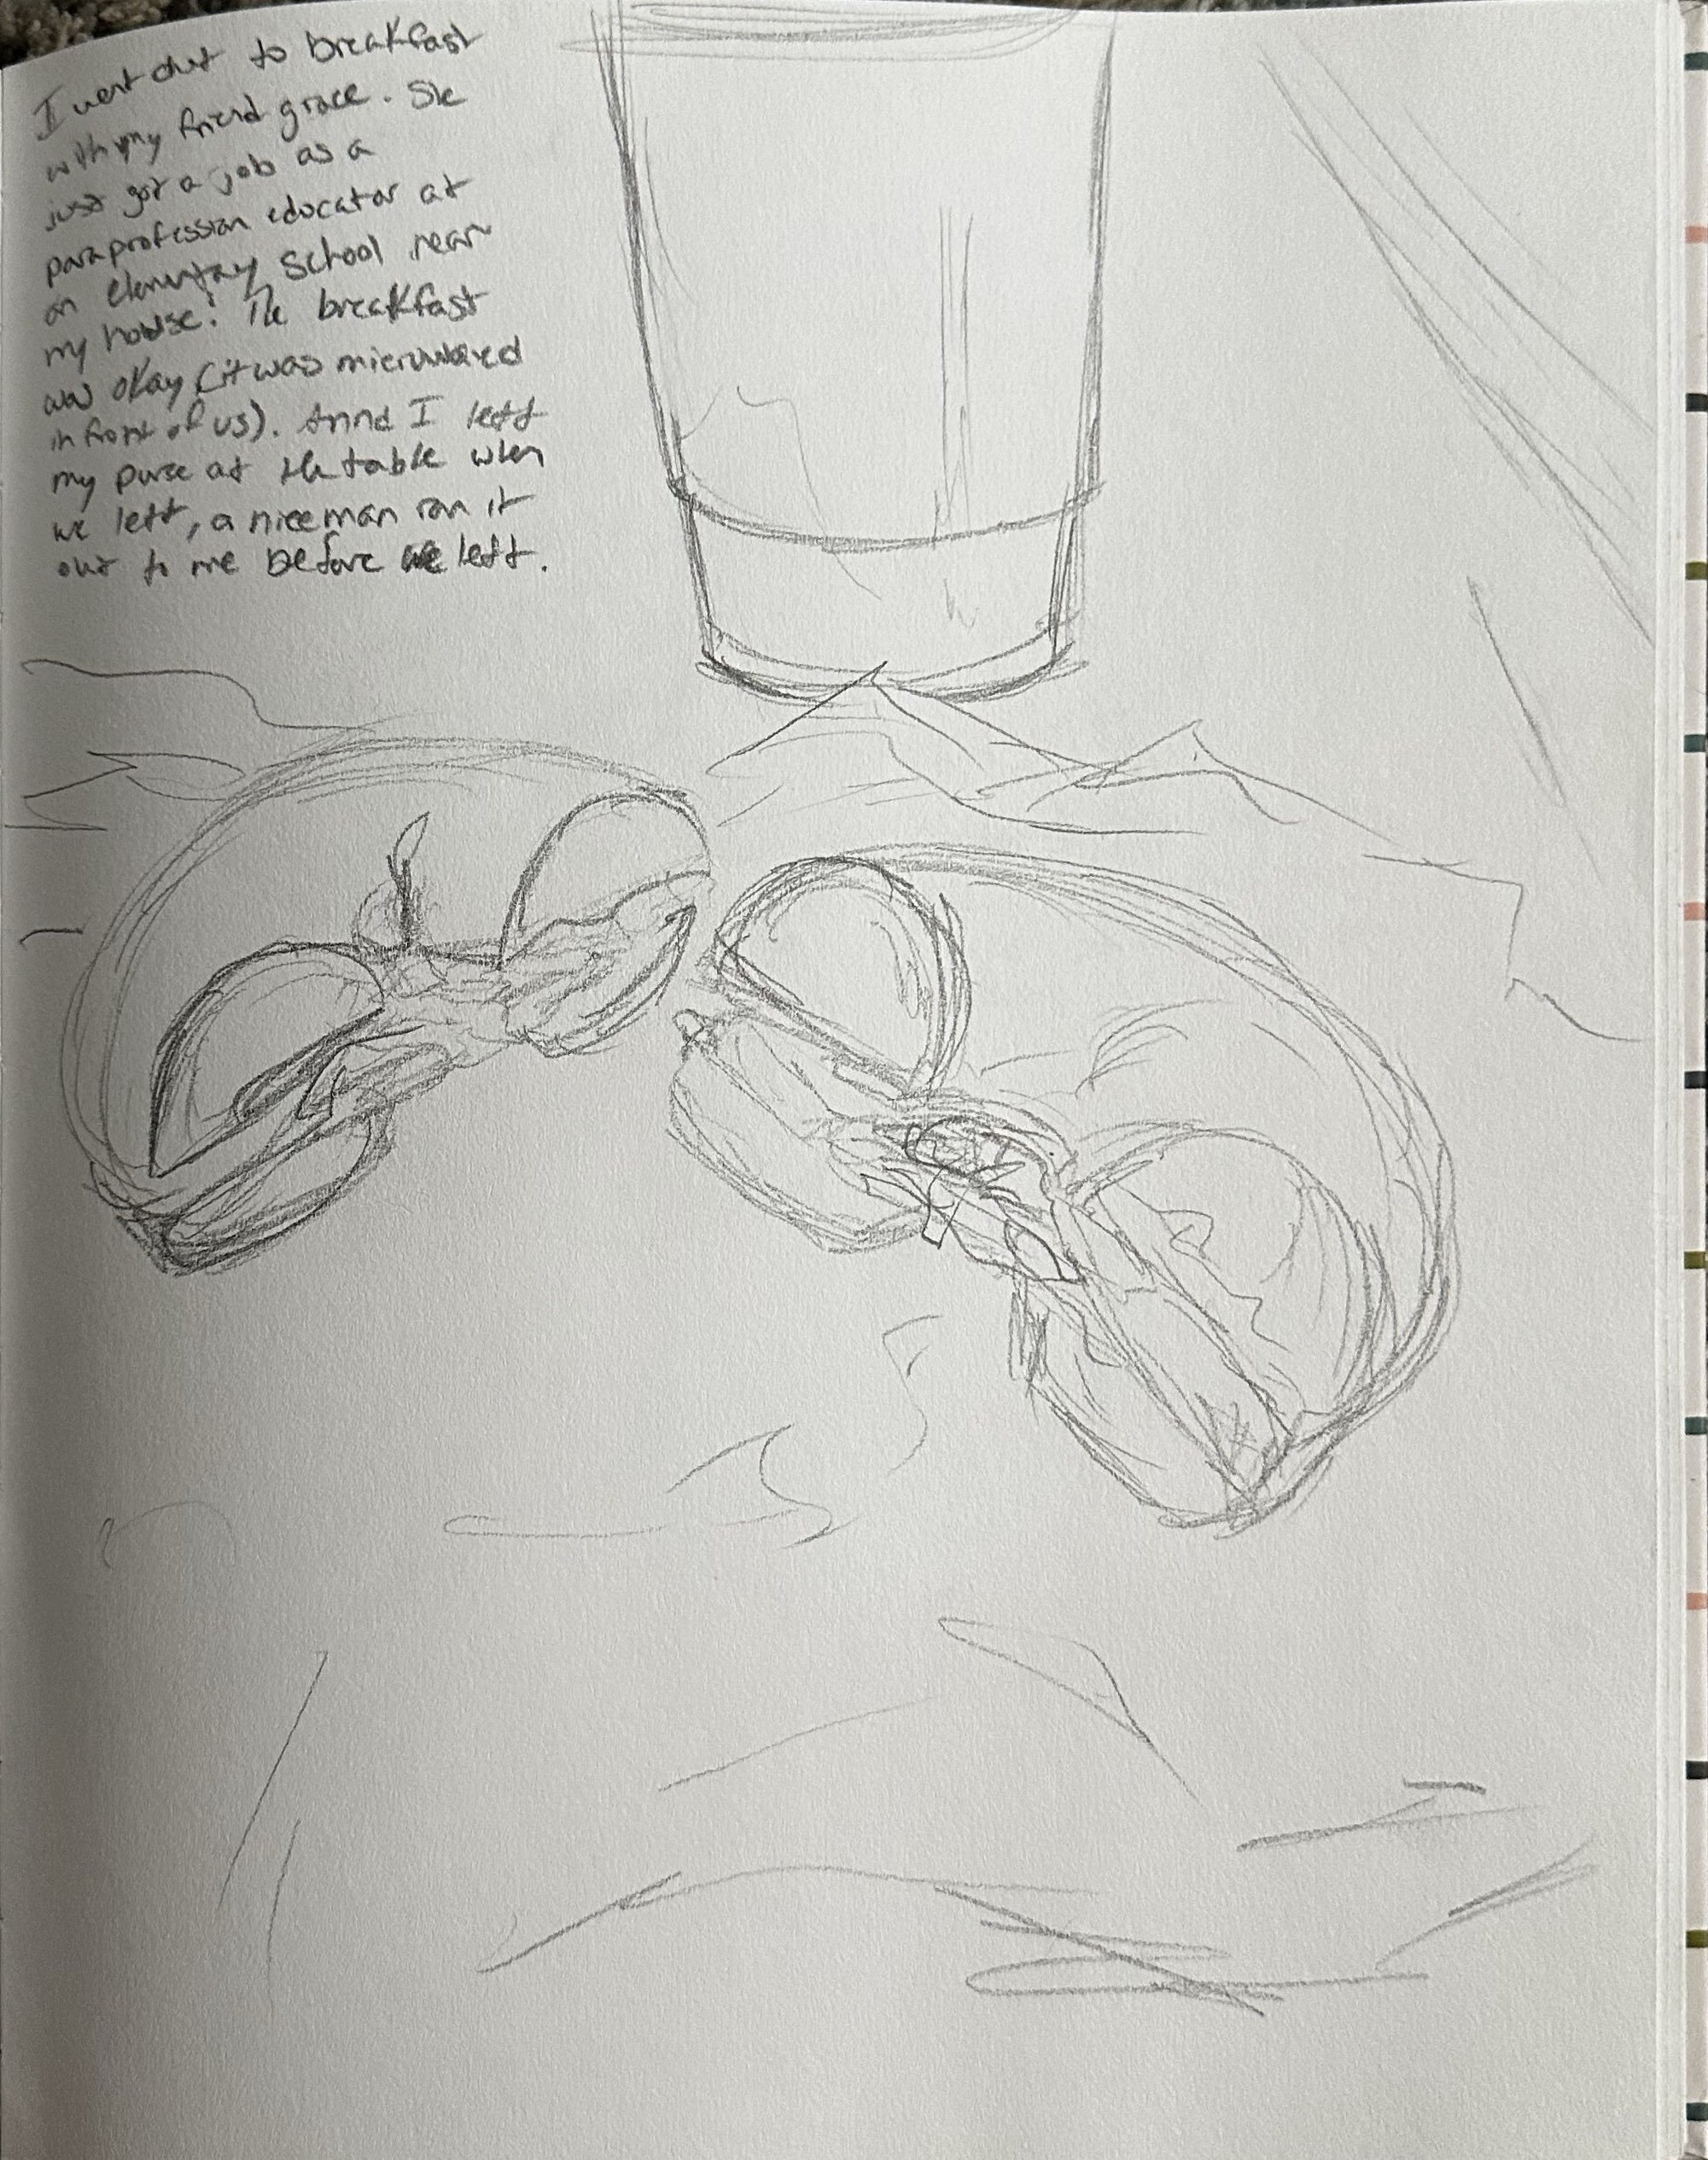 I went out to breakfast
with my friend grace. She
just got a job as a
paraprofession educator at
an elementary school near
my house. The breakfast
was okay (it was microwaved
in front of us). Annd I left
my purse at the table when
we left, a nice man ran it
out to me before we left.